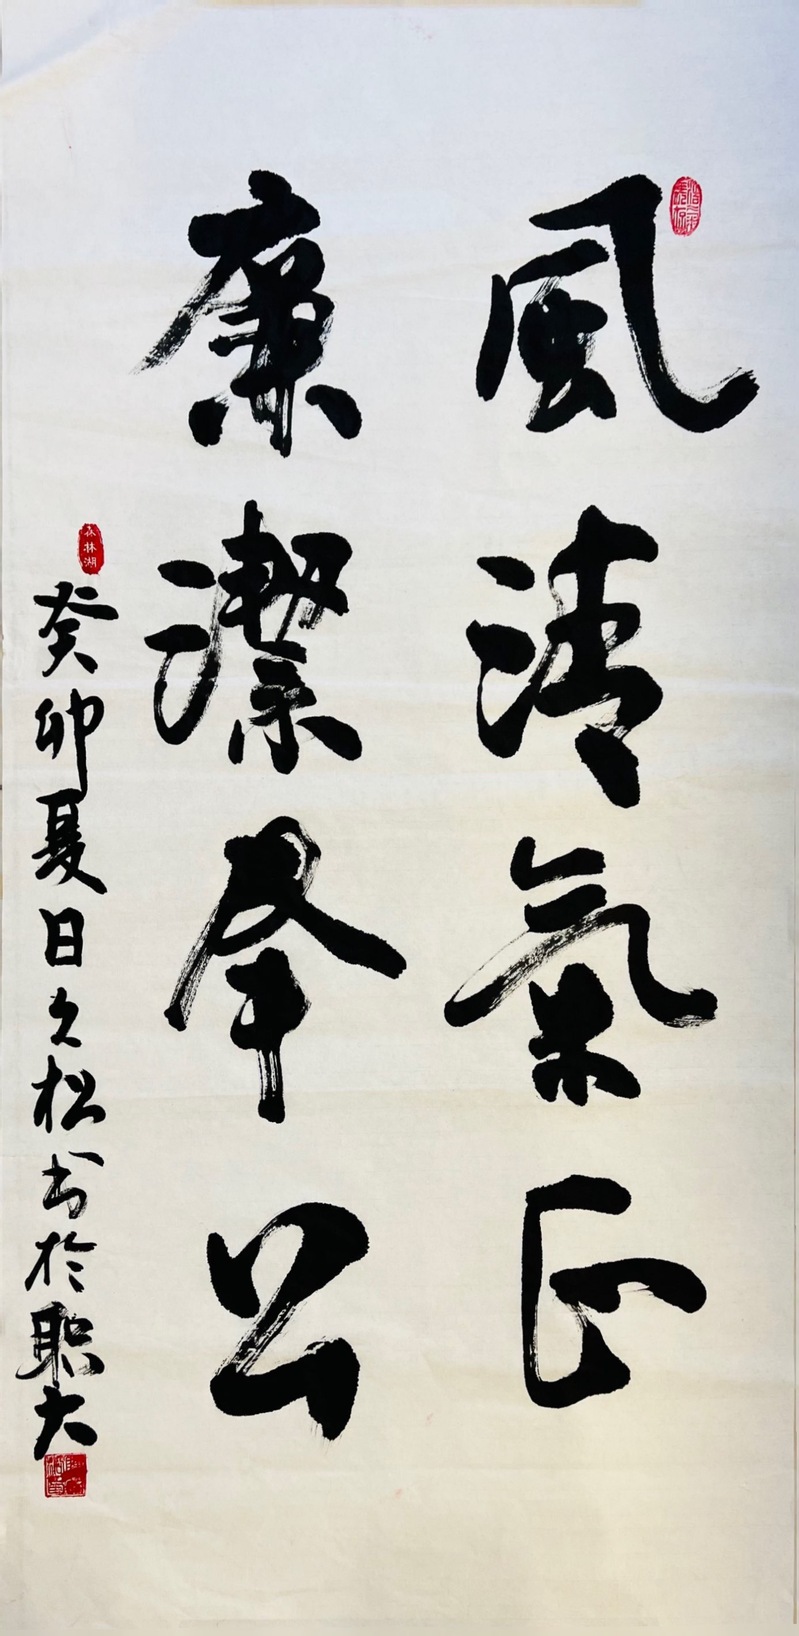 風清氣正
廉潔奉公
癸卯夏日久松书於职大
森林湖